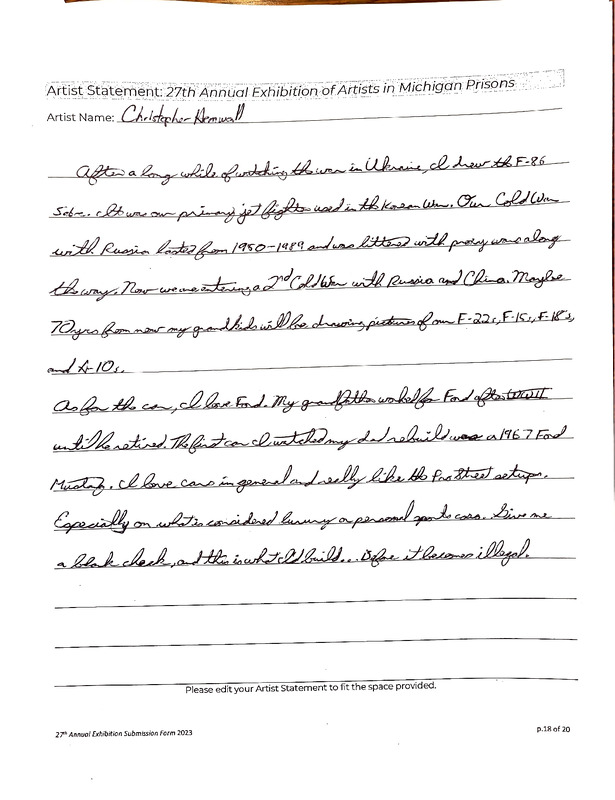 Artist Statement: 27th Annual Exhibition of Artists in Michigan Prisons
Artist Name: Christopher Hemwall
After a long while of watching the war in Ukraine, I drew the F-86
Sabre. It was our primary jet fighter used in the Korean War. Our Cold War
with Russia lasted from 1950-1989 and was littered with proxy wars along
the way. Now we are entering a 2nd Cold War with Russia and China. Maybe
70 yrs from now my grandkids will be drawing pictures of our F-22s, F-15s, F-18's,
and A-10s.
As for the car, I love Ford. My grandfather worked for Ford after WWII
until he retired. The first car I watched my dad rebuild was a 1967 Ford
Mustang. I love cars in general and really like the Pro Street setups.
Especially on what is considered luxury or personal sports cars. Give me
a blank check, and this is what I'd build... Before it becomes illegal.
Please edit your Artist Statement to fit the space provided.
27th Annual Exhibition Submission Form 2023
p.18 of 20